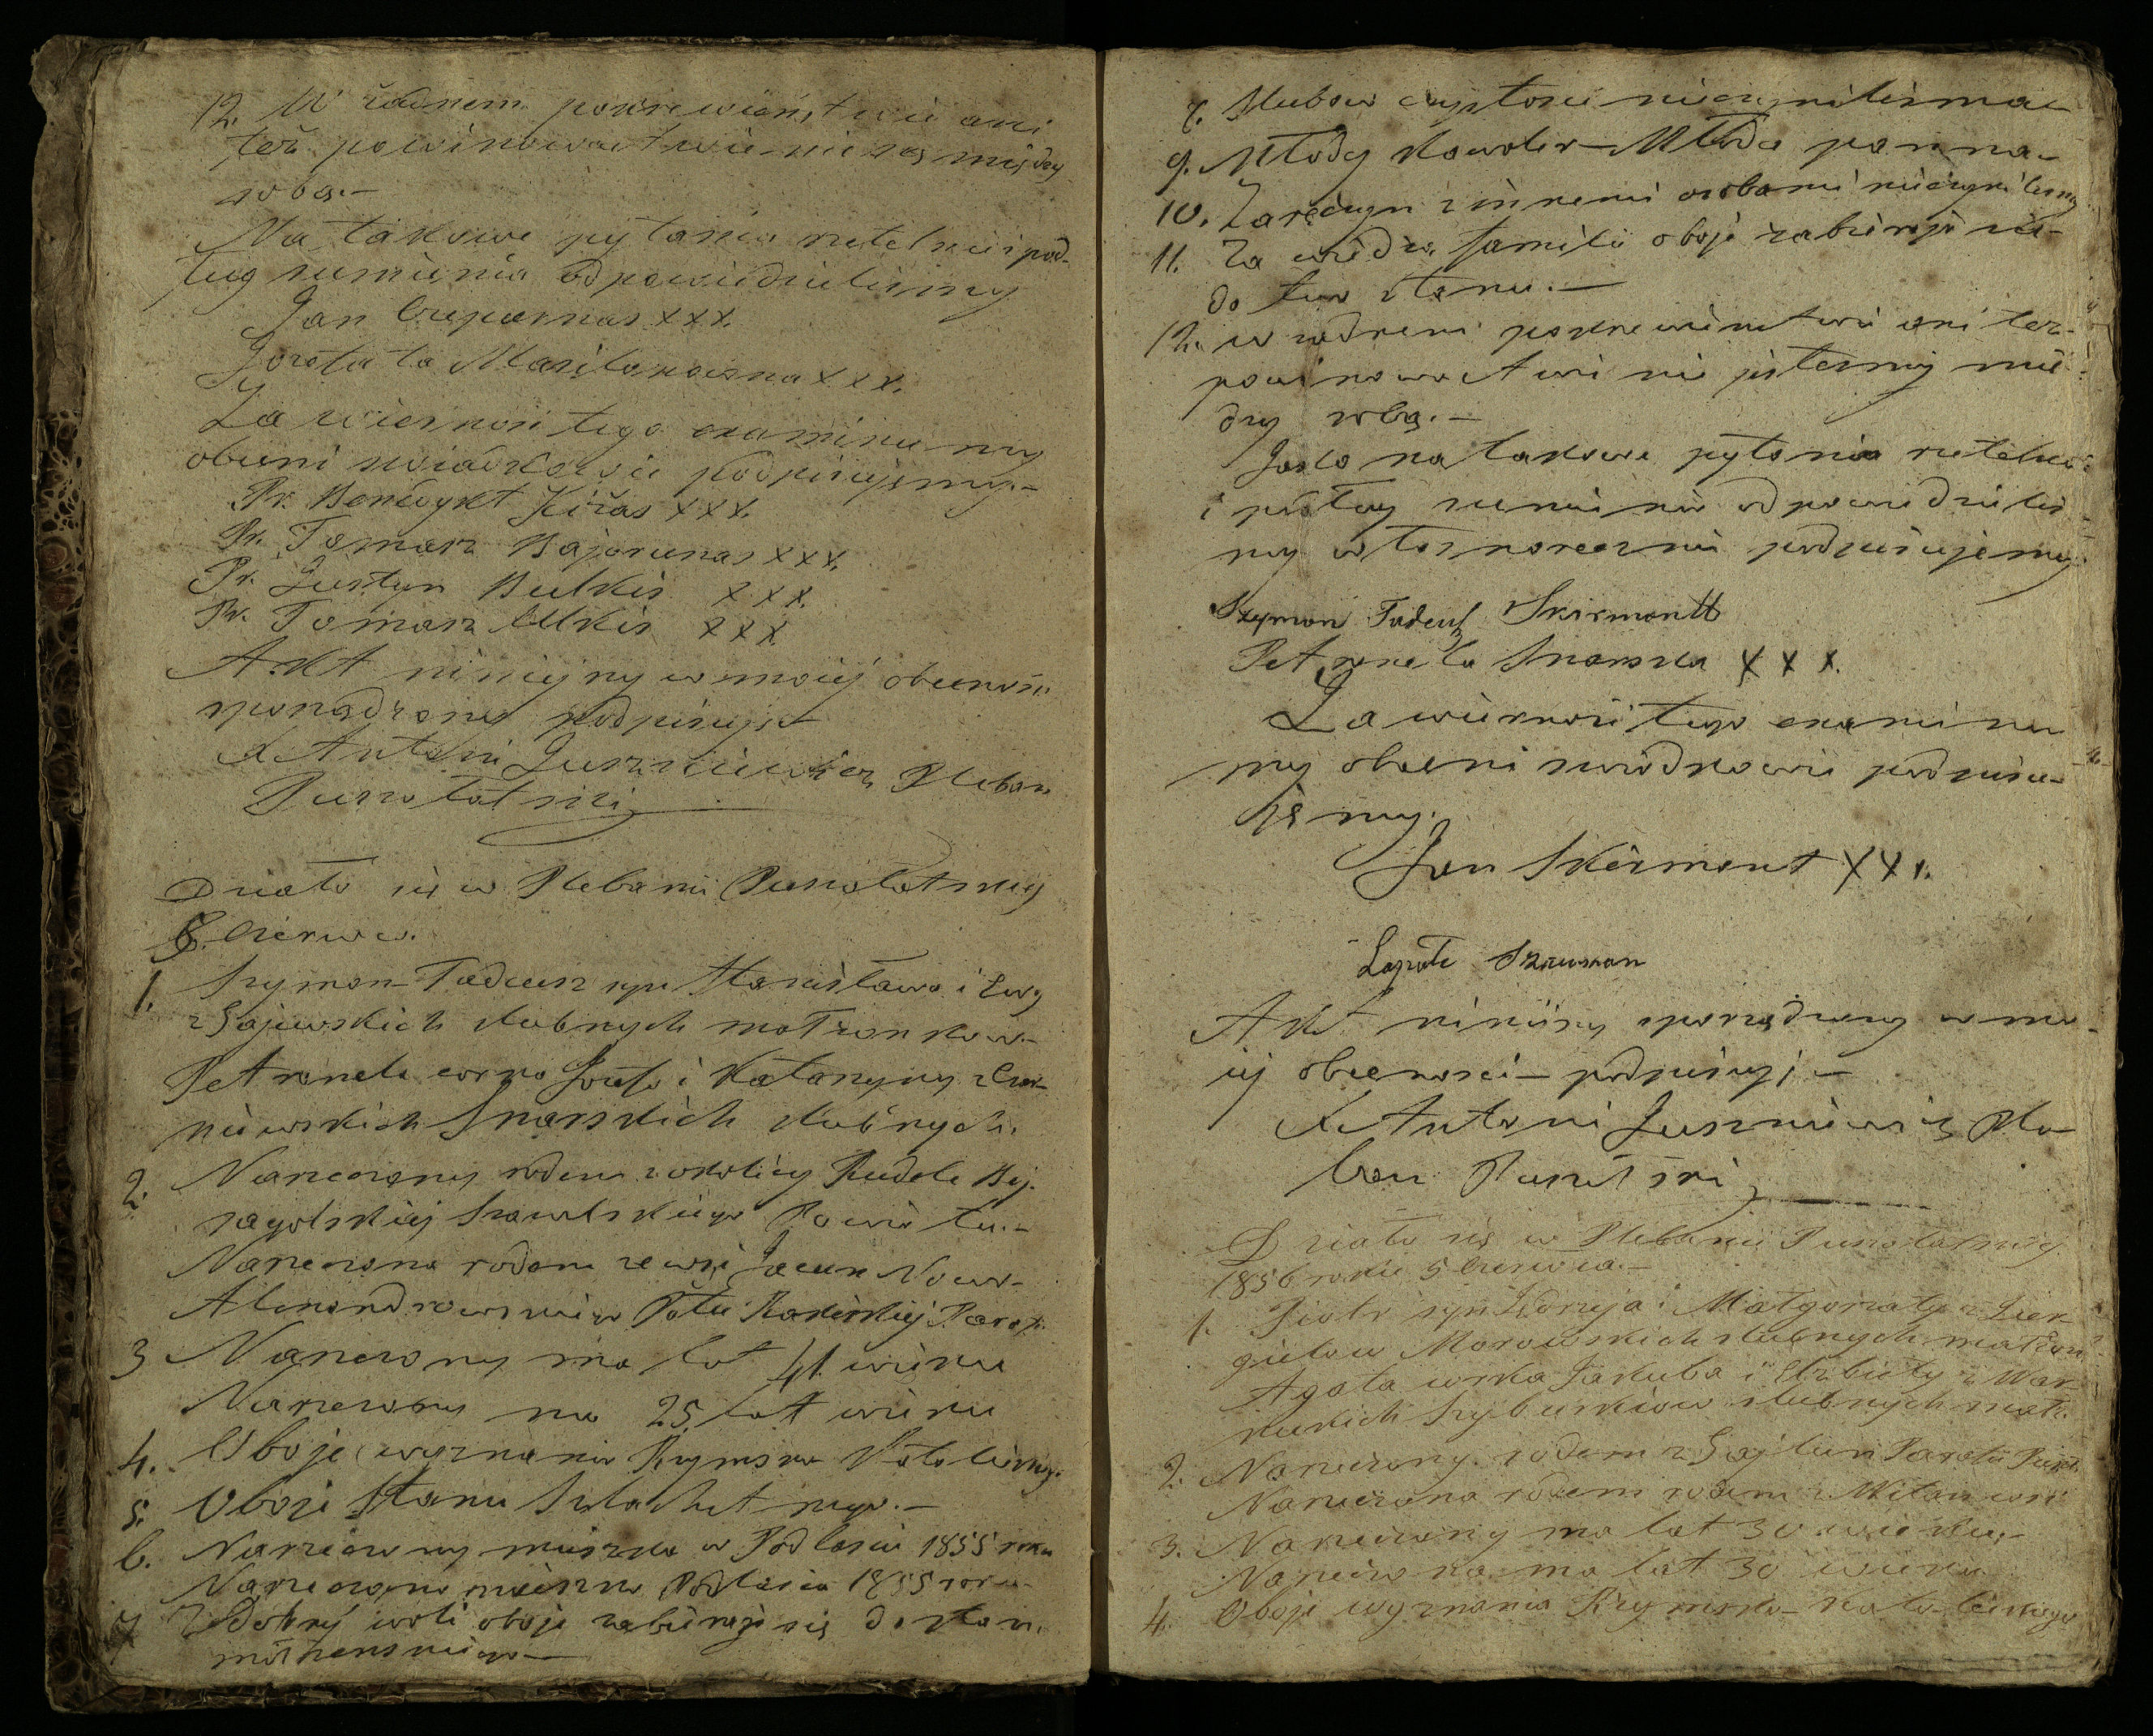 12. W żadnem pokrewieństwie ani
też powinowactwie nie są między
sobą.—
Na takowe pytania rzetelnie i pod-
ług sumienia odpowiedzielismy
Jan Czepurnas XXX.
Jozefata XXX.
Za wiernosc tego examinu my
obecni swiadkowie podpisujemy.—
Pr. Benedykt Kiżas XXX.
Pr. Tomasz Bajorunas XXX.
Pr. Justyn Butkis XXX.
Pr. Tomasz Ulkis XXX.
Akt niniejszy w mojej obecnosci
sporządzony podpisuję—
X Antoni Juszkiewicz Pleban
Puszołatski
Działo się w Plebanii Puszołatskiej
8. Czerwca.
1. Szymon Tadeusz syn Stanisława i Ewy
z Gajewskich slubnych małżonkow.—
Petronela corka Jozefa i Katarzyny z Czer-
niewskich Snarskich slubnych.
2. Narzeczony rodem z okolicy Rudele Bej-
sagolskiej Szawelskiego Powiatu.—
Narzeczona rodem ze wsi Nowo-
Alexandrowskiego Pᵒtu Rakiskiej Paraf.
3 Narzeczony ma lat 41 wieku
Narzeczony ma 25 lat wieku
4. Oboje wyznania Rzymsko Katolickiego.
5. Oboje Stanu Szlachetnego.—
6. Narzeczony mieszka w Podlasiu 1855 roku
Narzeczona mieszka Podlasiu 1855 roku
7 Z Dobrej woli oboje zabierają się do stan.
małżenskiego—
8. Slubow czystosci nieczynilismy
9. Młody Kawaler—Młoda panna—
10. Zaręczyn z innemi osobami nieczynilismy
11. Za wiedzą familii oboje zabierają się
do tego stanu.—
12. w żadnem pokrewienstwie ani też
powinowactwie nie jestesmy mię-
dzy sobą.—
Jako na takowe pytania rzetelnie
i podług sumienia odpowiedzielis-
my własnoręcznie podpisujemy
Szymon Tadeusz Skirmontt
Petronela Snarska X X X.
Za wiernosc tego examinu
my obecni swiadkowie podpisu-
jemy.
Jan Skirmont XXX.
Akt niniejszy sporządzony w mo-
jej obecnosci—podpisuję—
X Antoni Juszkiewicz Ple-
ban Puszołatski
Działo się w Plebanii Puszołatskiej
1856 roku 5 Czerwca.—
1. Piotr syn i Małgorzaty z
Morowskich slubnych małżon.
Agata corka Jakuba i Elżbiety z
slubnych małż.
2. Narzeczony rodem z Gajlun Parafii
Narzeczona rodem
3. Narzeczony ma lat 30 wieku.—
Narzeczona ma lat 30 wieku
4. Oboje wyznania Rzymsko-Katolickiego